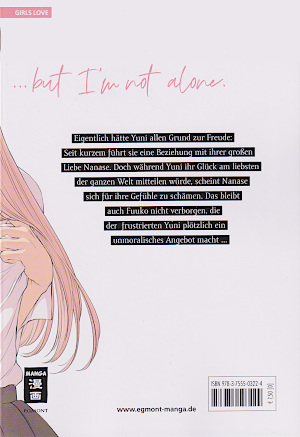 GIRLS LOVE
...but I'm not alone.
Eigentlich hätte Yuni allen Grund zur Freude:
Seit kurzem führt sie eine Beziehung mit ihrer großen
Liebe Nanase. Doch während Yuni ihr Glück am liebsten
der ganzen Welt mitteilen würde, scheint Nanase
sich für ihre Gefühle zu schämen. Das bleibt
auch Fuuko nicht verborgen, die
der frustrierten Yuni plötzlich ein
unmoralisches Angebot macht ...
MANGA
漫画
EGMONT
www.egmont-manga.de
ISBN 978-3-7555-0322-4